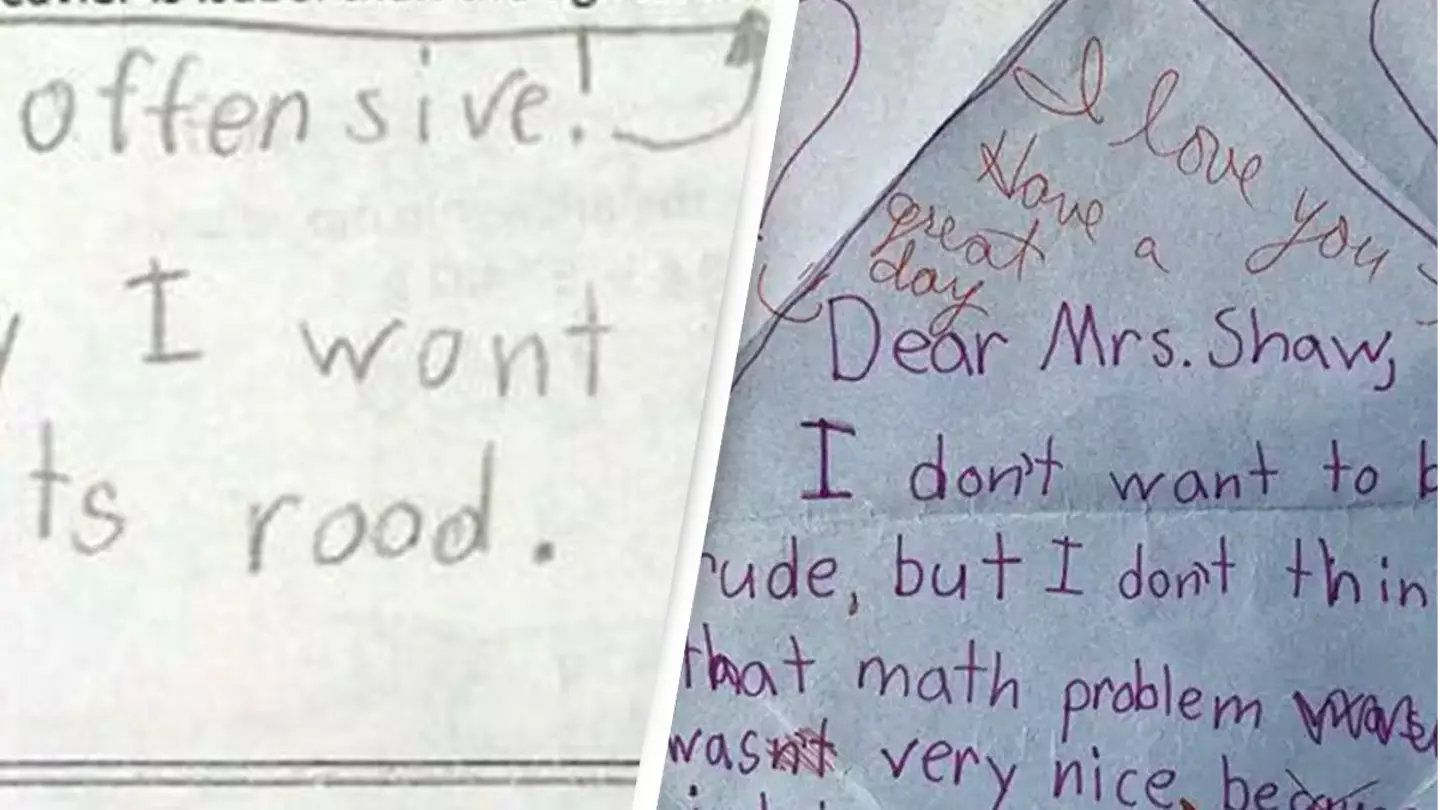 offensive!
I wont
ts rood.
I love you
Have a
great
day
Dear Mrs. Shaw,
I don't want to b
rude, but I don't thin
that math problem
wasn't very nice, bec